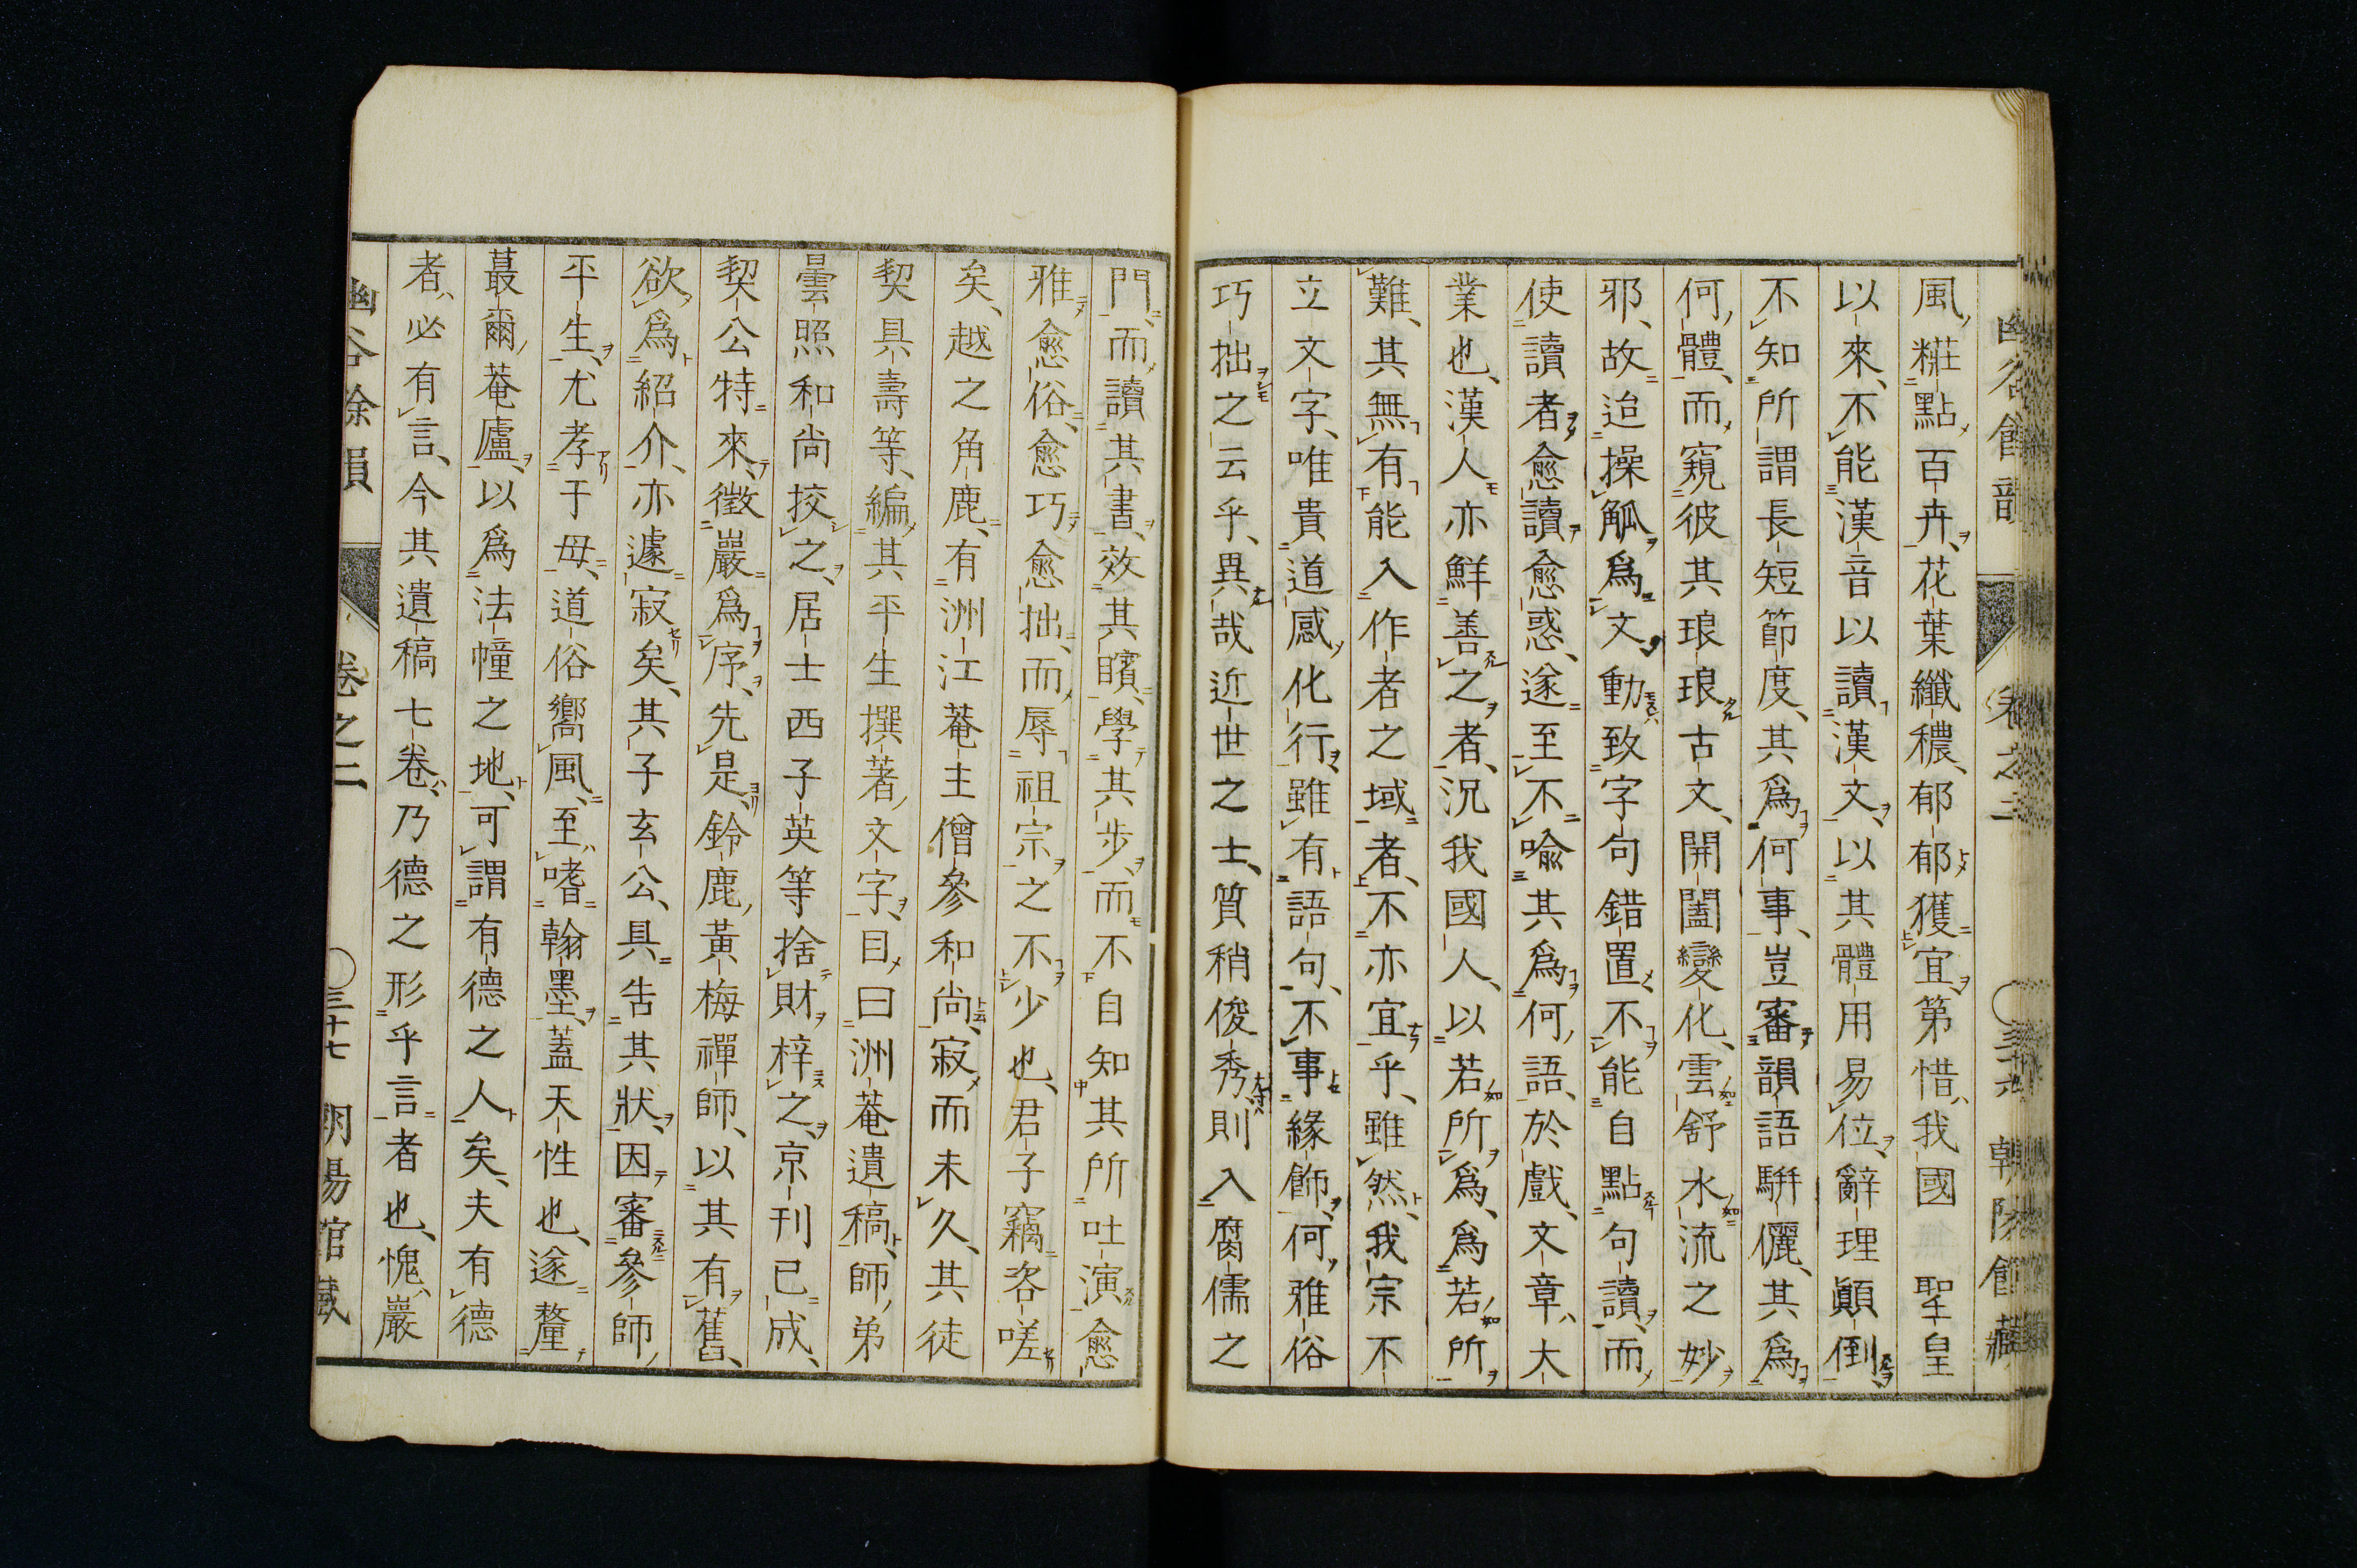 風粧點百卉花葉纖穠郁郁獲宜第惜我國聖皇
以來不能漢音以讀漢文以其體用易位辭理顛倒
不知所謂長短節度其爲何事豈審韻語駢儷其爲
何體而窺彼其琅琅古文開闔變化雲舒水流之妙
邪故迨操觚爲文動致字句錯置不能自點句讀而
使讀者愈讀愈惑遂至不喩其爲何語於戲文章大
業也漢人亦鮮善之者況我國人以若所爲爲若所
難其無有能入作者之域者不亦宜乎雖然我宗不
立文字唯貴道感化行雖有語句不事緣飾何雅俗
巧拙之云乎異哉近世之士質稍俊秀則入腐儒之
門而讀其書效其矉學其步而不自知其所吐演愈
雅愈俗愈巧愈拙而辱祖宗之不少也君子竊咨嗟
矣越之角鹿有洲江菴主僧參和尚寂而未久其徒
契具壽等編其平生撰著文字目曰洲菴遺稿師弟
曇照和尚挍之居士西子英等捨財梓之京刊已成
契公特來徵巖爲序先是鈴鹿黃梅禪師以其有舊
欲爲紹介亦遽寂矣其子玄公具告其狀因審參師
平生尤孝于母道俗嚮風至嗜翰墨蓋天性也遂釐
蕞爾菴廬以爲法幢之地可謂有德之人矣夫有德
者必有言今其遺稿七卷乃德之形乎言者也愧巖
幽谷餘韻 卷之二 三十七 朝陽館藏